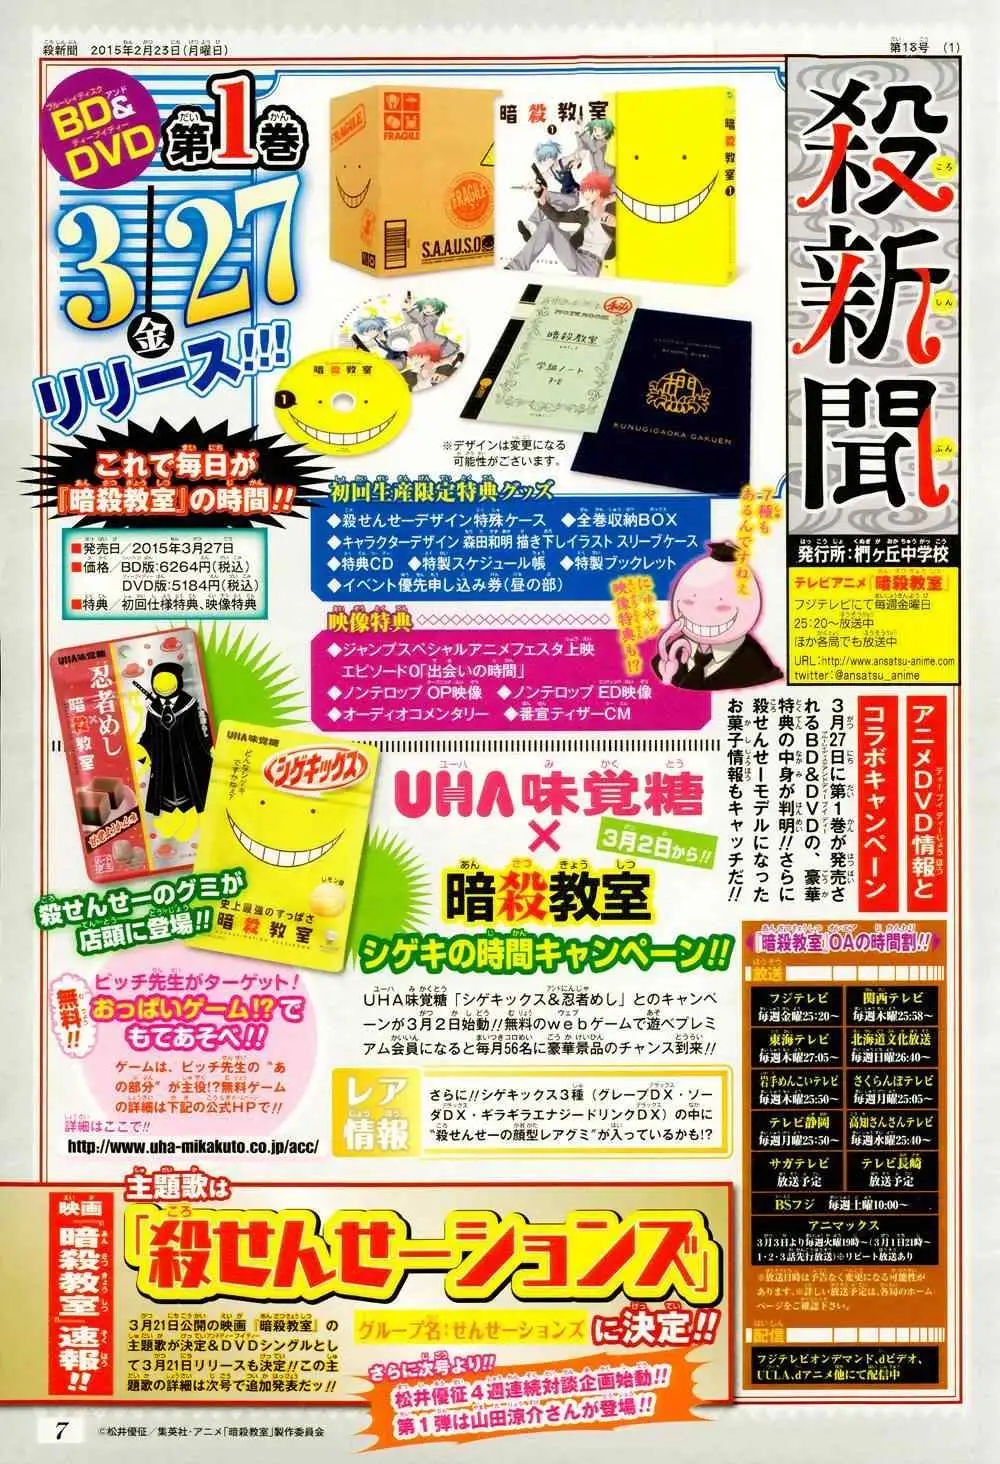 殺新聞 2015年2月23日(月曜日)
第18号 (1)
殺新聞
発行所：椚ヶ丘中学校
テレビアニメ『暗殺教室』
フジテレビにて毎週金曜日
25:20〜放送中
ほか各局でも放送中
URL:http://www.ansatsu-anime.com
twitter:@ansatsu_anime
BD&
DVD
第1巻
3/27
金
リリース!!!
FRAGILE
FRAGILE
S.A.A.U.S.O
暗殺教室
1
暗殺教室1
暗殺教室
1
暗殺教室
学級ノート
3-E
KUNUGIGAOKA GAKUEN
※デザインは変更になる
可能性がございます。
これで毎日が
『暗殺教室』の時間!!
■発売日/2015年3月27日
■価格/BD版:6264円(税込)
DVD版:5184円(税込)
■特典/初回仕様特典、映像特典
初回生産限定特典グッズ
◆殺せんせーデザイン特殊ケース ◆全巻収納BOX
◆キャラクターデザイン 森田和明 描き下しイラスト スリーブケース
◆特典CD ◆特製スケジュール帳 ◆特製ブックレット
◆イベント優先申し込み券(昼の部)
7種も
あるんですねぇ
にゅやッ
映像特典も!?
映像特典
◆ジャンプスペシャルアニメフェスタ上映
エピソード0「出会いの時間」
◆ノンテロップOP映像 ◆ノンテロップED映像
◆オーディオコメンタリー ◆番宣ティザーCM
アニメDVD情報と
コラボキャンペーン
3月27日に第1巻が発売さ
れるBD&DVDの、豪華
特典の中身が判明!!さらに
殺せんせーモデルになった
お菓子情報もキャッチだ!!
UHA味覚糖
忍者めし
暗殺教室
UHA味覚糖
シゲキックス
レモン味
史上最強のすっぱさ
暗殺教室
殺せんせーのグミが
店頭に登場!!
UHA味覚糖
×
3月2日から!!
暗殺教室
シゲキの時間キャンペーン!!
UHA味覚糖「シゲキックス&忍者めし」とのキャンペ
ーンが3月2日始動!!無料のwebゲームで遊べプレミ
アム会員になると毎月56名に豪華景品のチャンス到来!!
無料!!
ビッチ先生がターゲット!
おっぱいゲーム!?で
もてあそべ!!
ゲームは、ビッチ先生の“あ
の部分”が主役!?無料ゲーム
の詳細は下記の公式HPで!!
詳細はここで!!
http://www.uha-mikakuto.co.jp/acc/
レア
情報
さらに!!シゲキックス3種(グレープDX・ソー
ダDX・ギラギラエナジードリンクDX)の中に
“殺せんせーの顔型レアグミ”が入っているかも!?
『暗殺教室』OAの時間割!!
放送
フジテレビ
毎週金曜25:20〜
関西テレビ
毎週木曜25:58〜
東海テレビ
毎週木曜27:05〜
北海道文化放送
毎週日曜26:40〜
岩手めんこいテレビ
毎週木曜25:50〜
さくらんぼテレビ
毎週月曜25:05〜
テレビ静岡
毎週月曜25:50〜
高知さんさんテレビ
毎週水曜25:40〜
サガテレビ
放送予定
テレビ長崎
放送予定
BSフジ 毎週土曜10:00〜
アニマックス
3月3日より毎週火曜19時〜(3月1日21時〜
1・2・3話先行放送)※リピート放送あり
※放送日時は予告なく変更になる可能性が
あります。※詳しい放送予定は、各局のホーム
ページをご確認下さい。
配信
フジテレビオンデマンド、dビデオ、
UULA、dアニメ他にて配信中
映画
暗殺教室
速報!!
主題歌は
「殺せんせーションズ」
グループ名:せんせーションズ
に決定!!
3月21日公開の映画『暗殺教室』の
主題歌が決定&DVDシングルとし
て3月21日リリースも決定!!この主
題歌の詳細は次号で追加発表だッ!!
さらに次号より!!
松井優征4週連続対談企画始動!!
第1弾は山田涼介さんが登場!!
7
©松井優征/集英社・アニメ「暗殺教室」製作委員会